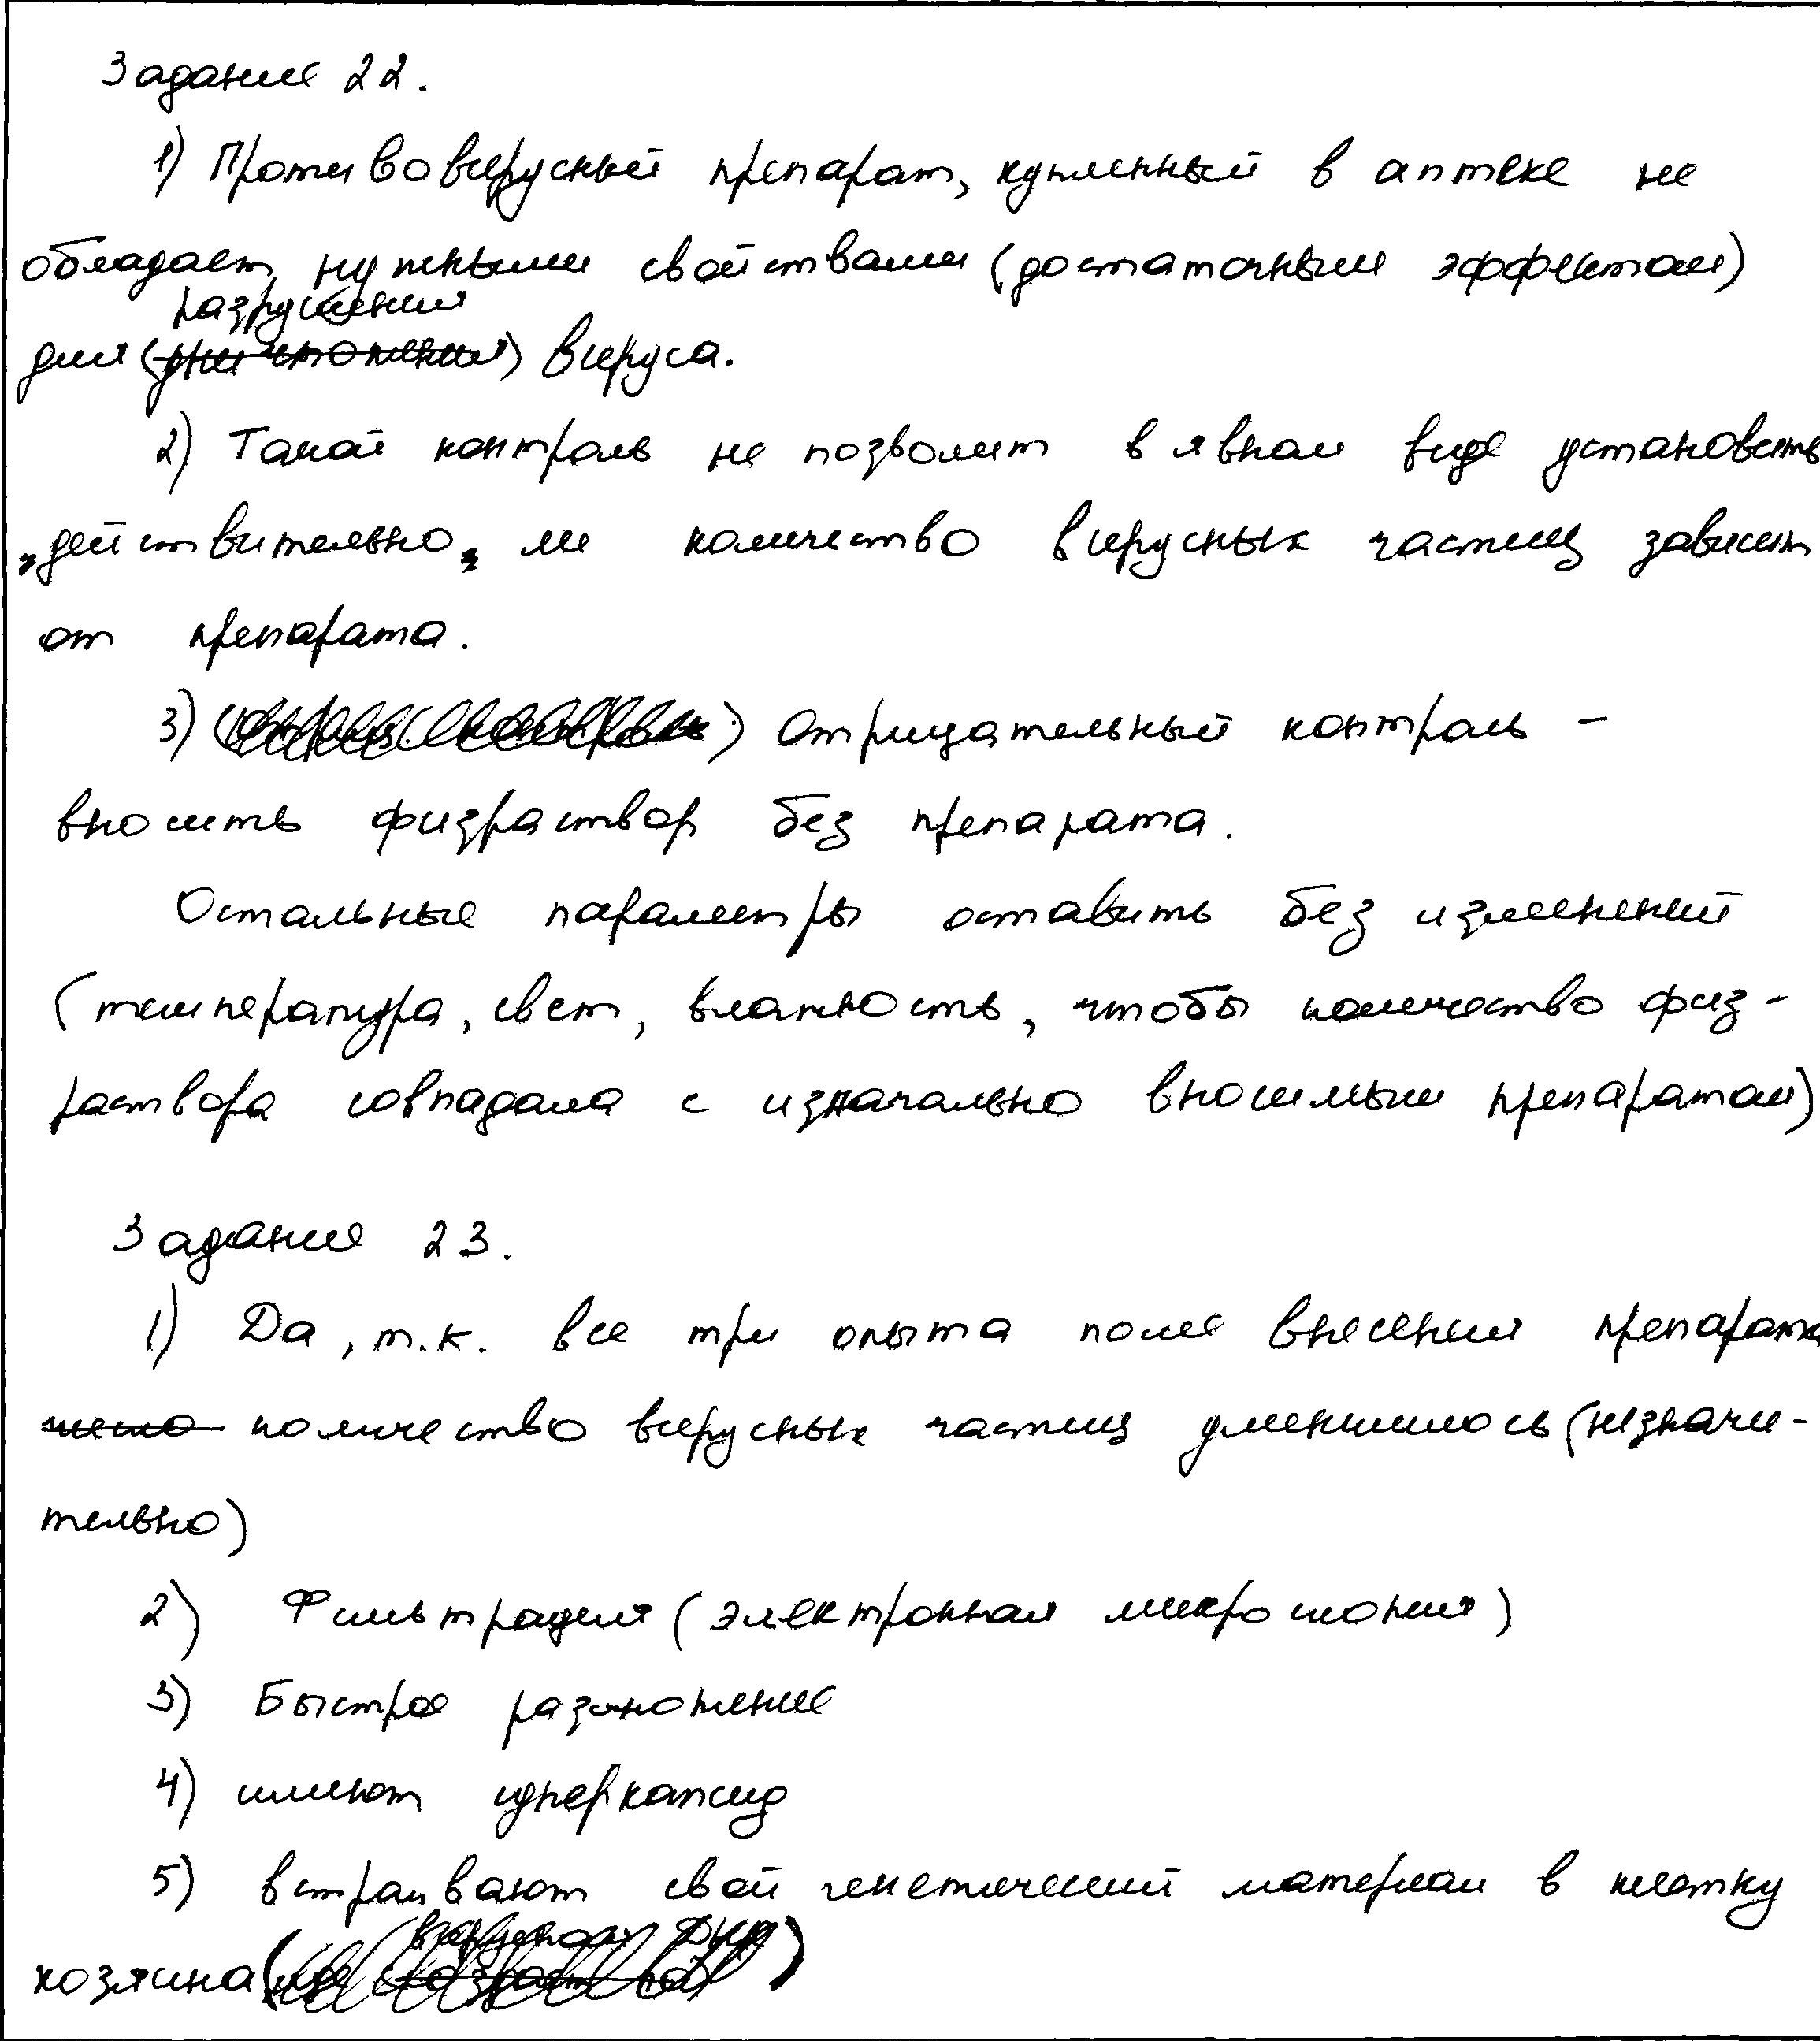 Задание 22.
1) Противовирусный препарат, купленный в аптеке не
обладает нужными свойствами (достаточным эффектом)
разрушения
для (уничтожения) вируса.
2) Такой контроль не позволит в явном виде установить
, действительно, ли количество вирусных частиц зависит
от препарата.
3) Отрицательный контроль –
вносить физраствор без препарата.
Остальные параметры оставить без изменений
(температура, свет, влажность, чтобы количество физ-
раствора совпадала с изначально вносимым препаратом)
Задание 23.
1) Да, т.к. все три опыта после внесения препарата
количество вирусных частиц уменьшилось (незначи-
тельно)
2) Фильтрация (электронная микроскопия)
3) Быстрое размножение
4) имеют суперкапсид
5) встраивают свой генетический материал в клетку
хозяина